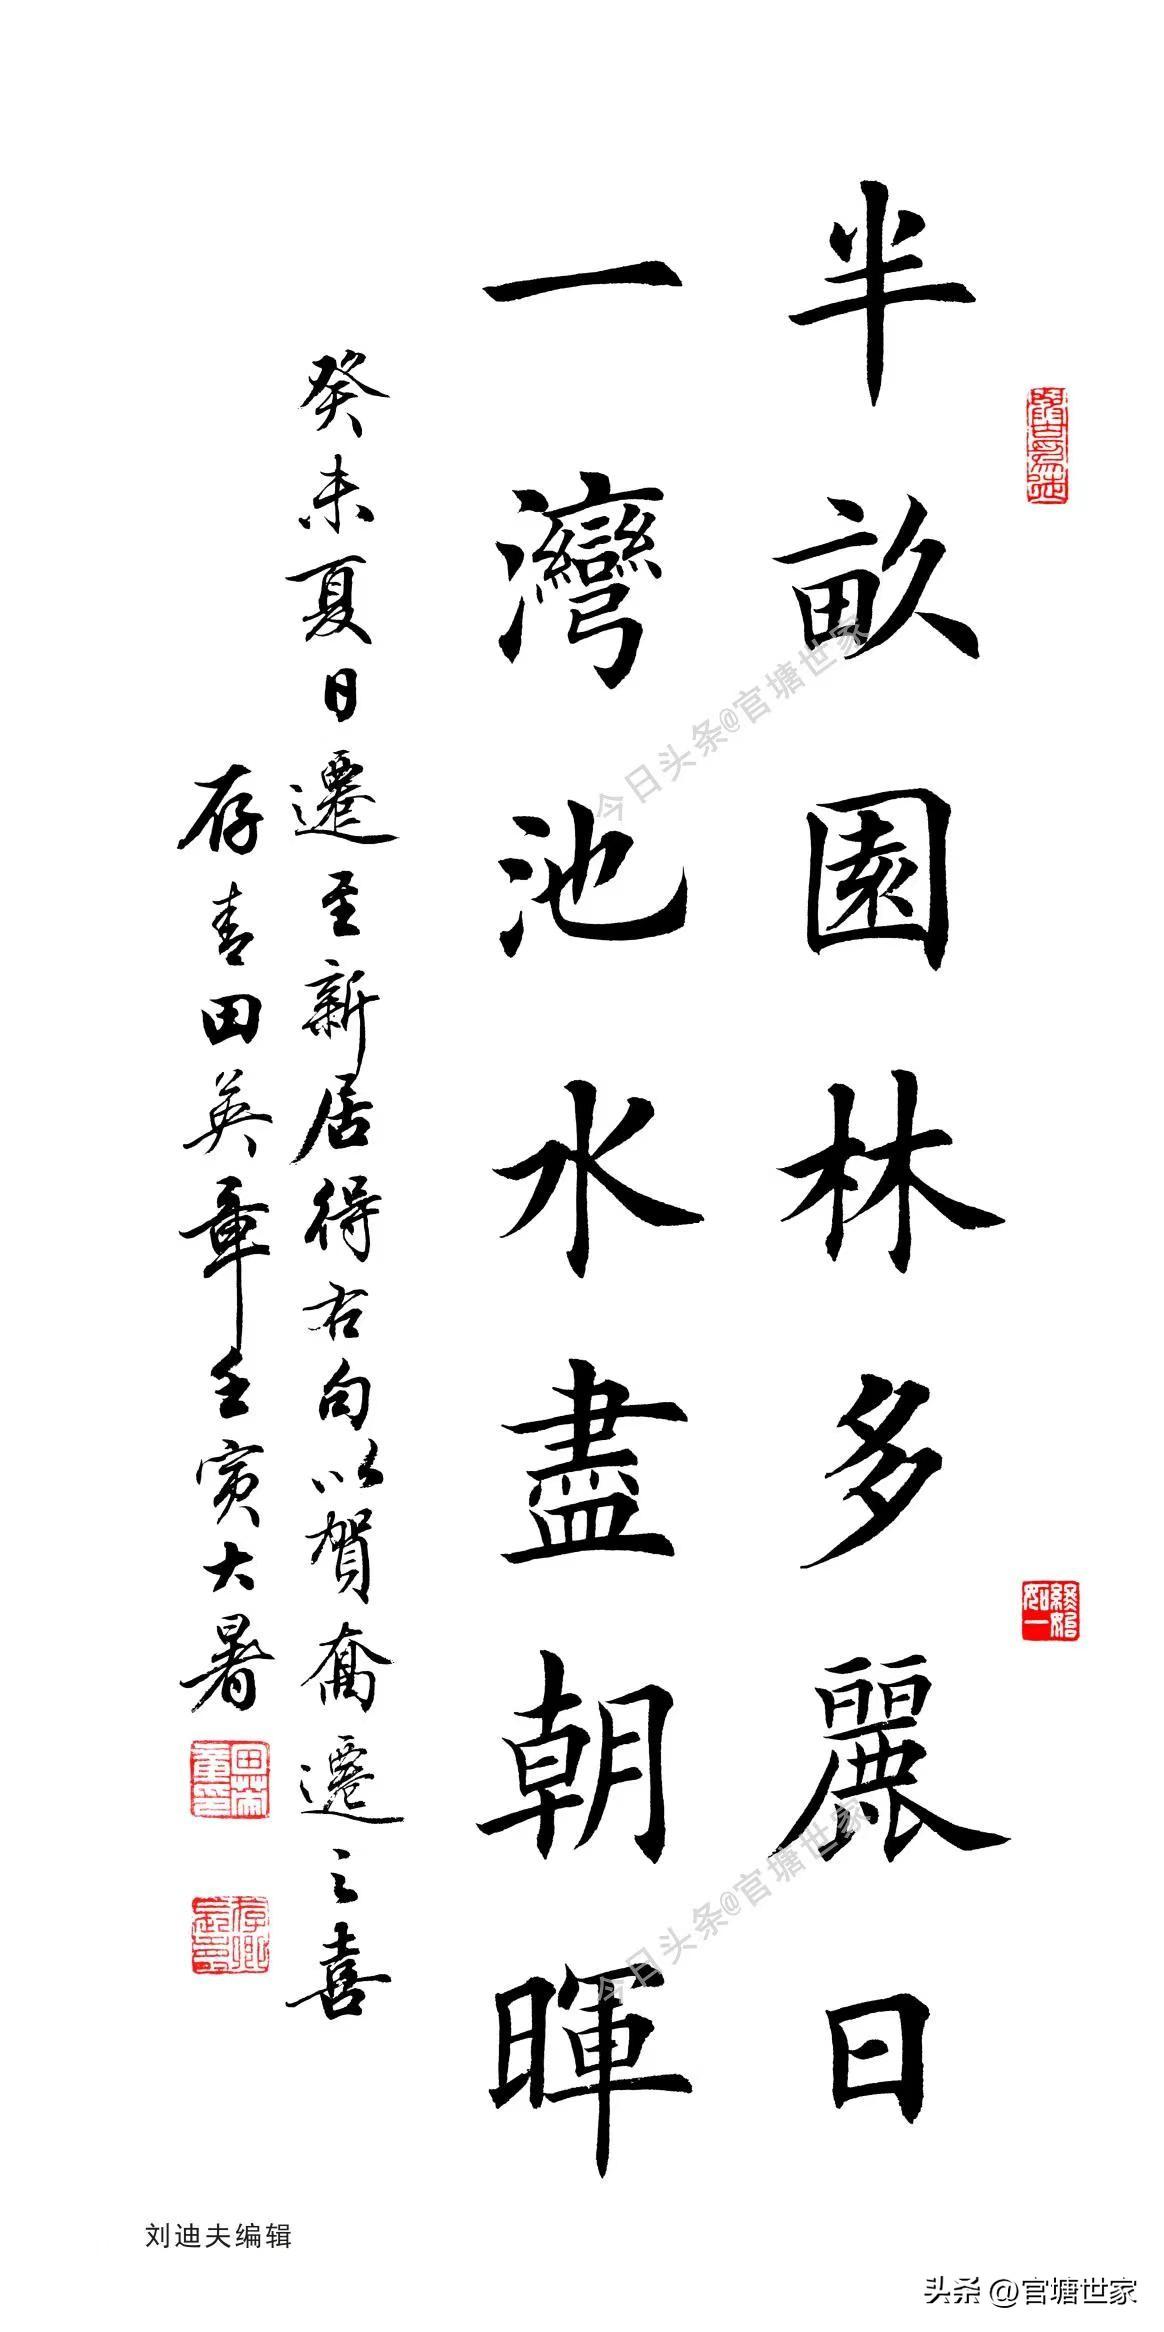 半畝園林多麗日
一灣池水盡朝暉
癸未夏日遷至新居得右句以賀喬遷之喜
存青田英章壬寅大暑
終始如一
田英章印
今日头条@官塘世家
今日头条@官塘世家
刘迪夫编辑
头条@官塘世家